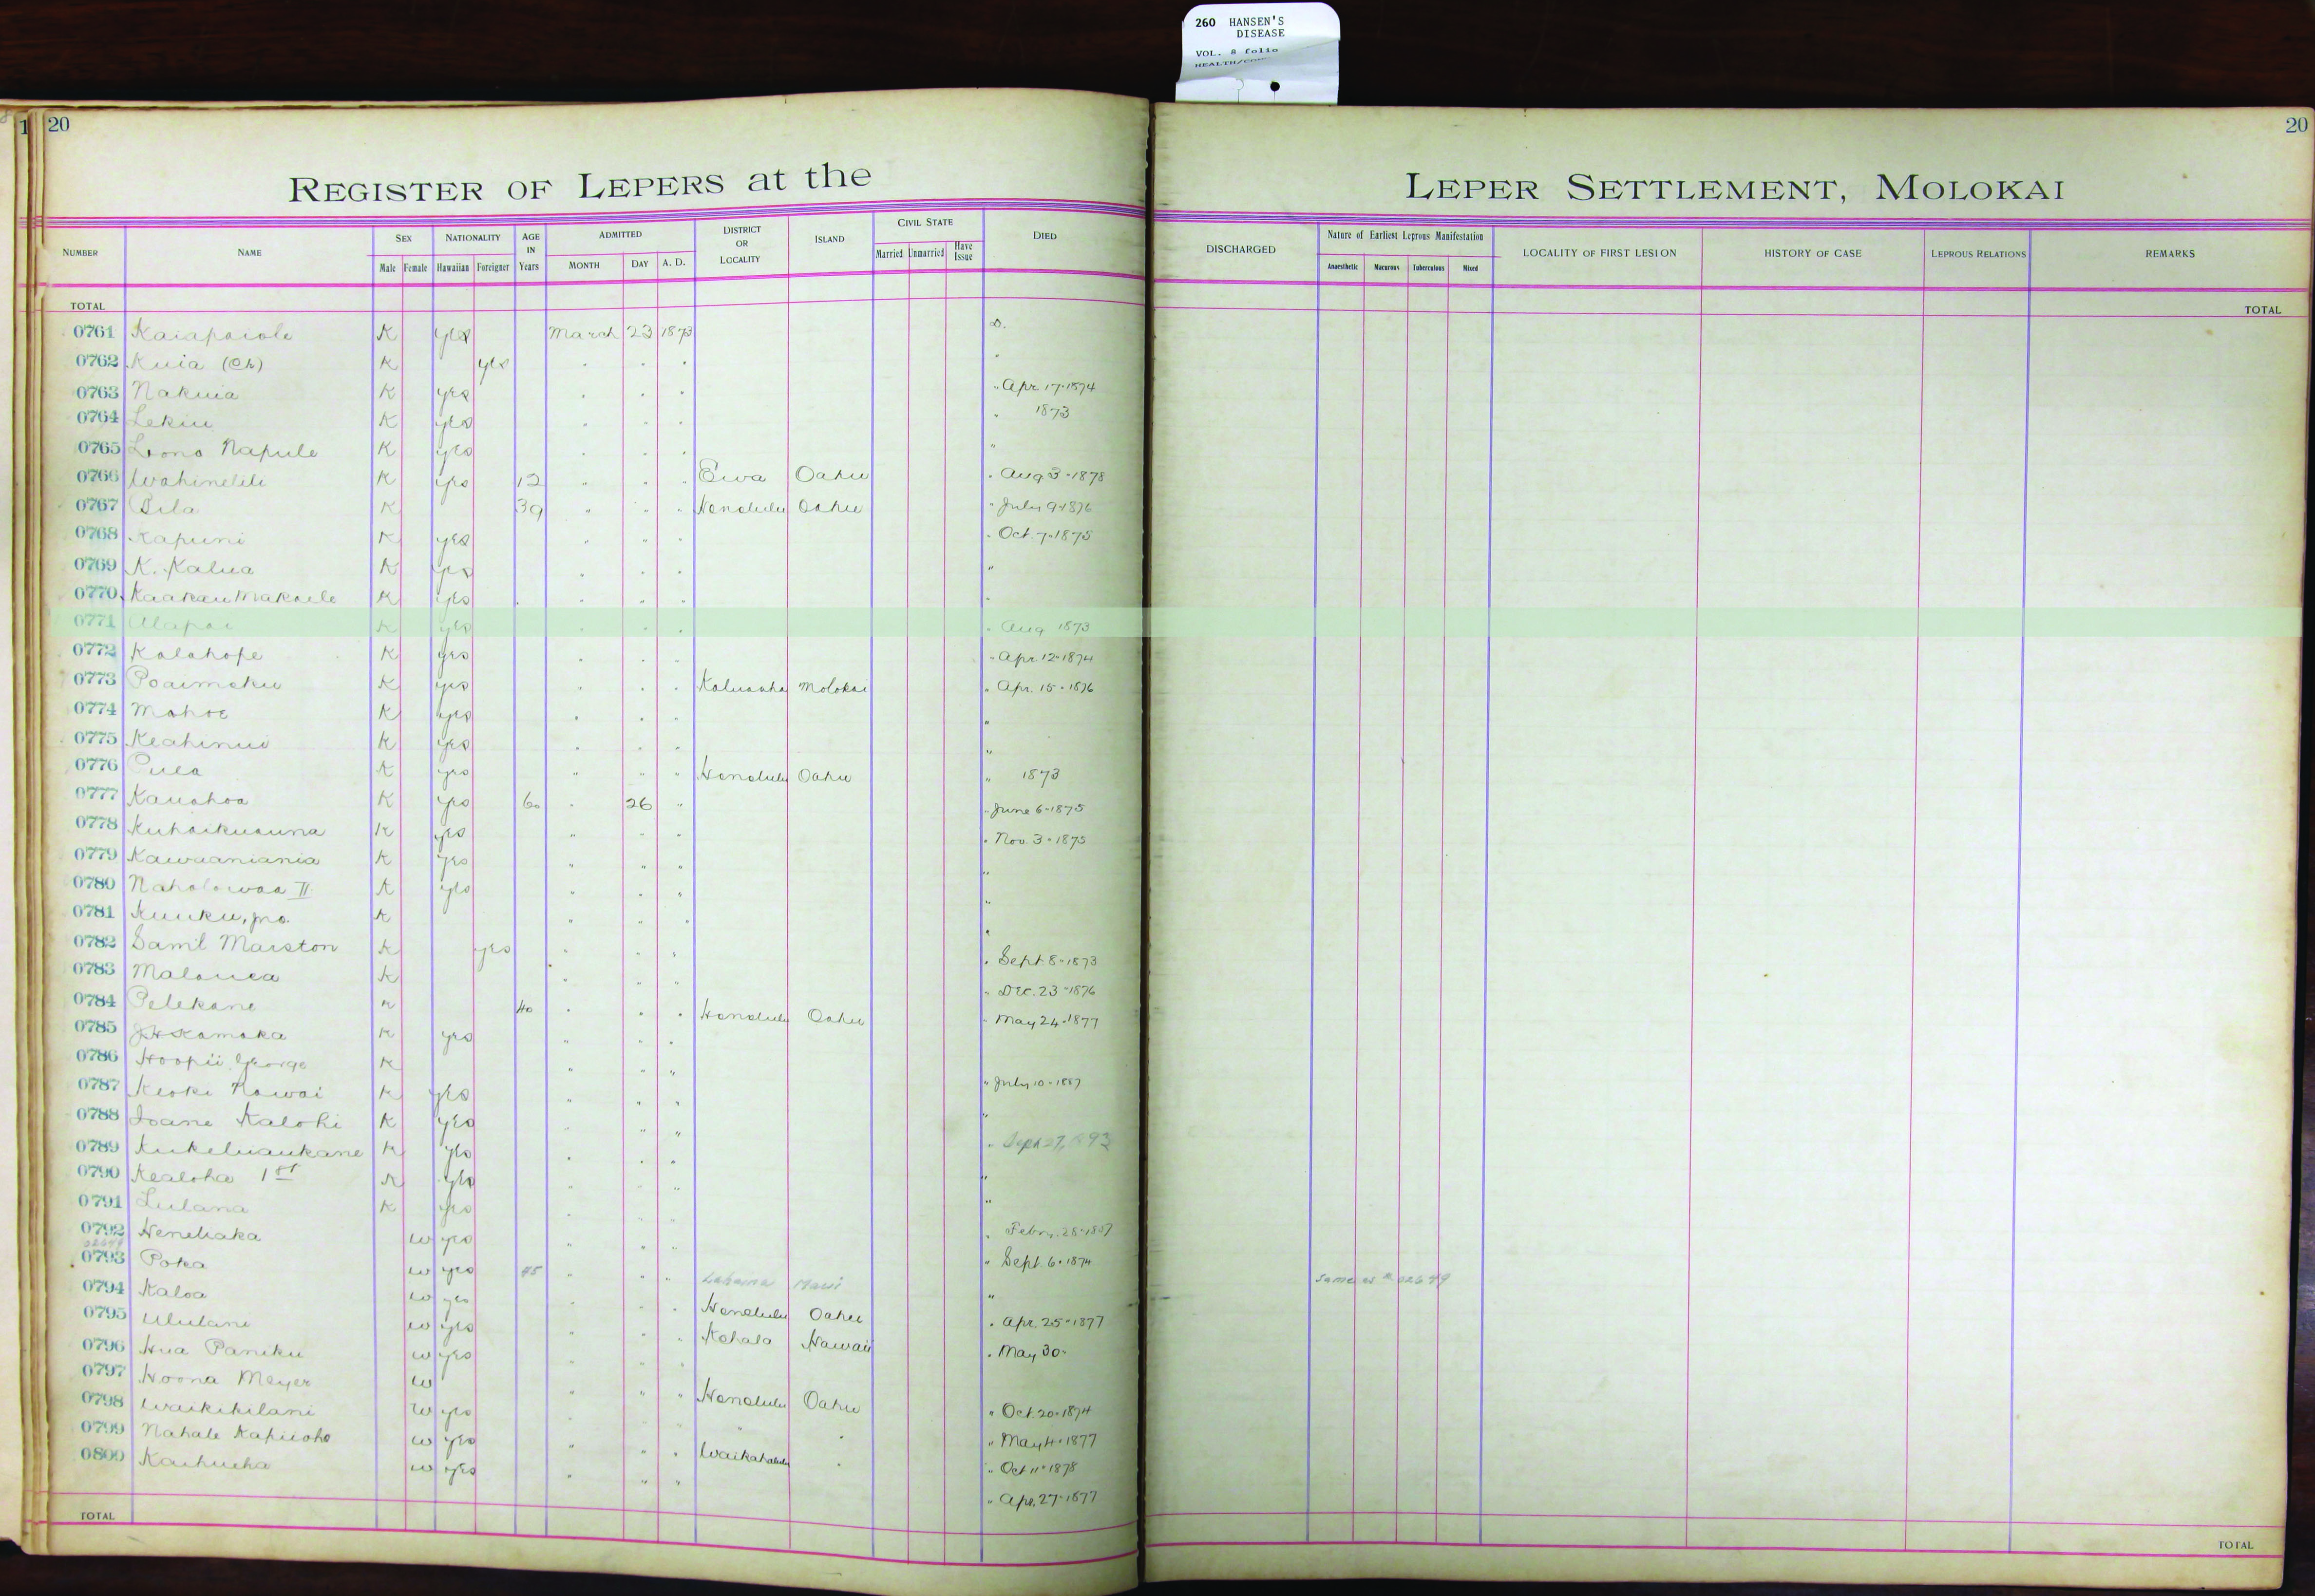 260 HANSEN'S
DISEASE
VOL. 8 folio
20
20
REGISTER OF LEPERS at the LEPER SETTLEMENT, MOLOKAI
NUMBER NAME SEX NATIONALITY AGE IN Years ADMITTED DISTRICT OR LOCALITY ISLAND CIVIL STATE DIED DISCHARGED Nature of Earliest Leprous Manifestation LOCALITY OF FIRST LESION HISTORY OF CASE LEPROUS RELATIONS REMARKS
Male Female Hawaiian Foreigner MONTH DAY A. D. Married Unmarried Have Issue Anaesthetic Macurous Tuberculous Mixed
TOTAL TOTAL
0761 Kaiapaiole K yes March 23 1873 D.
0762 Kuia (Ch) K yes " " " "
0763 Nakuia K yes " " " " Apr. 17-1874
0764 Lekiu K yes " " " " 1873
0765 Lono Napule K yes " " " "
0766 Wahinelili K yes 12 " " " Ewa Oahu " Aug 3-1878
0767 Pila K 39 " " " Honolulu Oahu " July 9-1876
0768 Kapuni K yes " " " " Oct. 7-1875
0769 K. Kalua K yes " " " "
0770 K yes " " " "
0771 Alapai K yes " " " " Aug 1873
0772 Kalahope K yes " " " " Apr. 12-1874
0773 Poaimoku K yes " " " Kaluaaha Molokai " Apr. 15-1876
0774 Mahoe K yes " " " "
0775 Keahinui K yes " " " "
0776 K yes " " " Honolulu Oahu " 1873
0777 Kauahoa K yes 60 " 26 " " June 6-1875
0778 Kuhaikuauna K yes " " " " Nov. 3-1875
0779 Kawaaniania K yes " " " "
0780 Naholowaa II K yes " " " "
0781 Kuuku, jno. K " " " "
0782 Saml Marston K yes " " " " Sept 8-1873
0783 K " " " " Dec. 23-1876
0784 Pelekane K 40 " " " Honolulu Oahu " May 24-1877
0785 J H Kamaka K yes " " "
0786 Hoopii George K " " " " July 10-1887
0787 Keoki Nawai K yes " " " "
0788 Ioane Kalohi K yes " " " " Sept 27, 1893
0789 Kukeluaukane K yes " " " "
0790 Kealoha 1st K yes " " " "
0791 Lulana K yes " " " " Febry. 28-1887
0792 Henehaka w yes " " " " Sept. 6-1874
0793 Poka w yes 45 " " " Lahaina Maui " Same as # 02649
0794 Kaloa w yes " " " Honolulu Oahu " Apr. 25-1877
0795 Ululani w yes " " " Kohala Hawaii " May 30-
0796 Hua Paniku w yes " " "
0797 Hoona Meyer w " " " Honolulu Oahu " Oct. 20-1874
0798 Waikikilani w yes " " " " " " May 4-1877
0799 Nahale Kapuoho w yes " " " Waikahalulu " " Oct 11-1878
0800 Kaihueha w yes " " " " Apr. 27-1877
TOTAL TOTAL